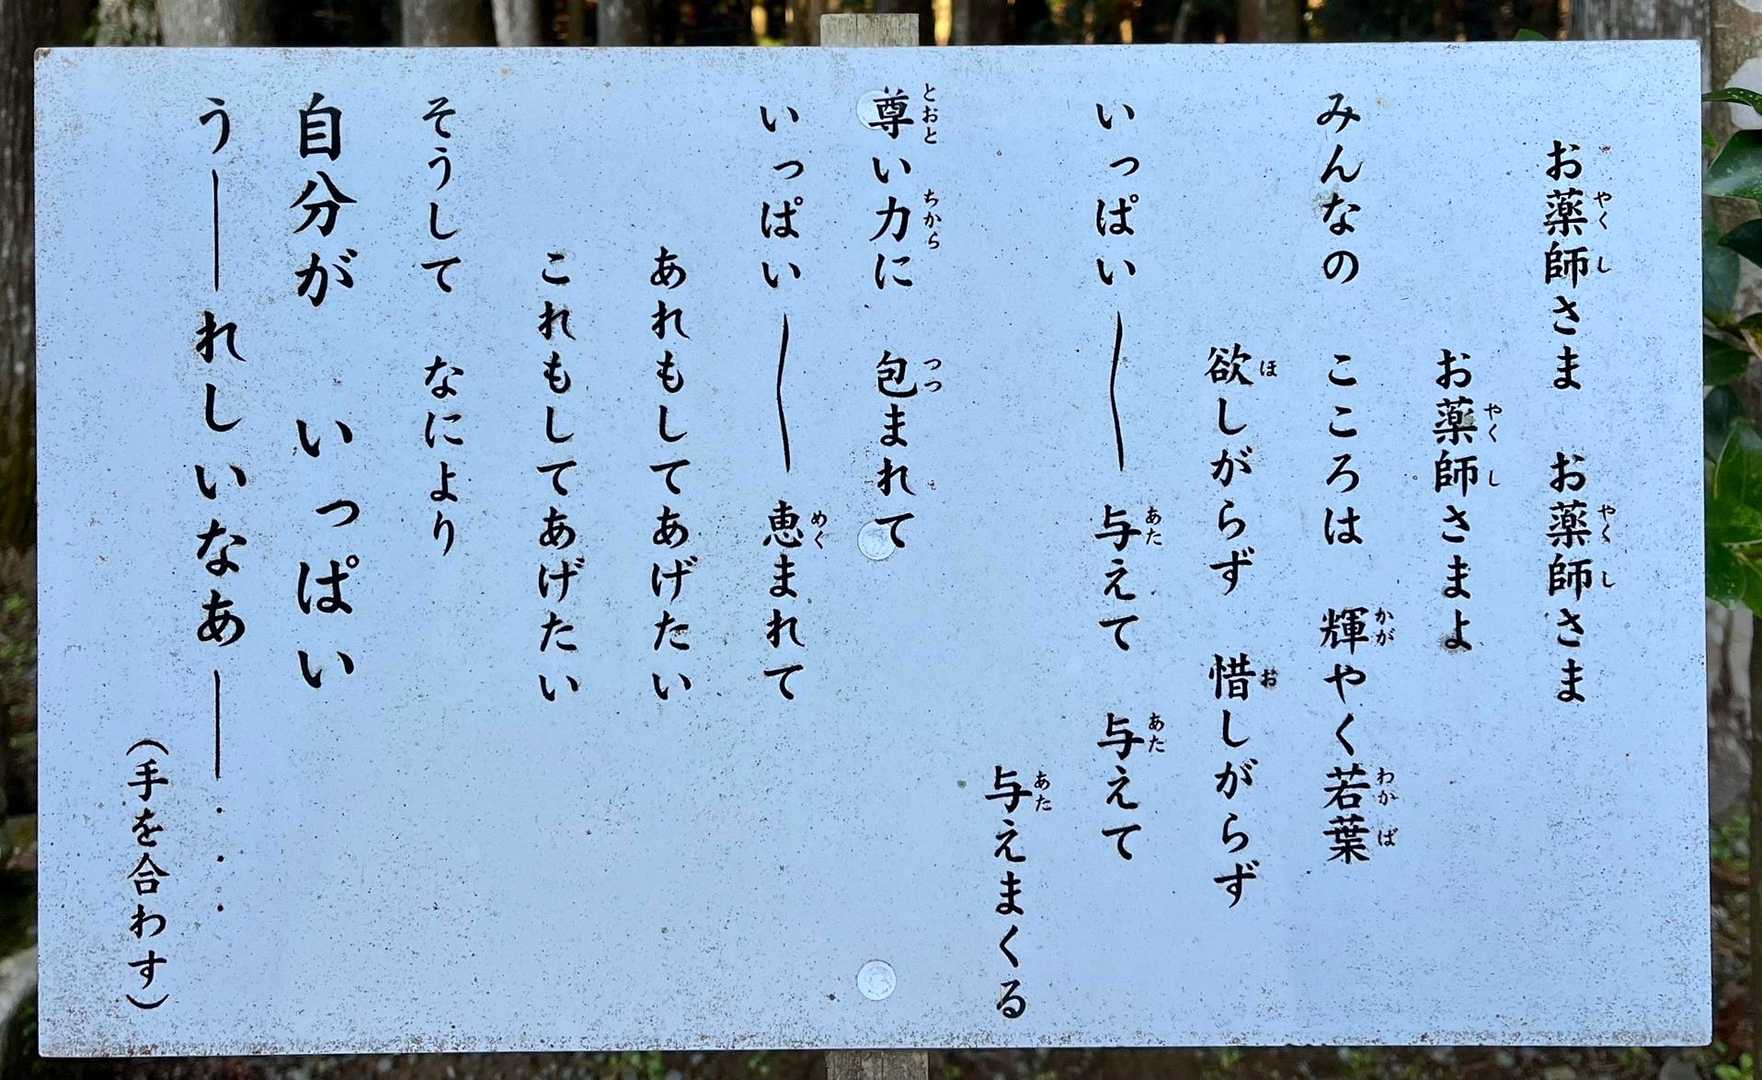 お薬師さま　お薬師さま
お薬師さまよ
みんなの　こころは　輝やく若葉
欲しがらず　惜しがらず
いっぱい――与えて　与えて
与えまくる
尊い力に　包まれて
いっぱい――恵まれて
あれもしてあげたい
これもしてあげたい
そうして　なにより
自分が　いっぱい
う――れしいなあ――・・・
（手を合わす）